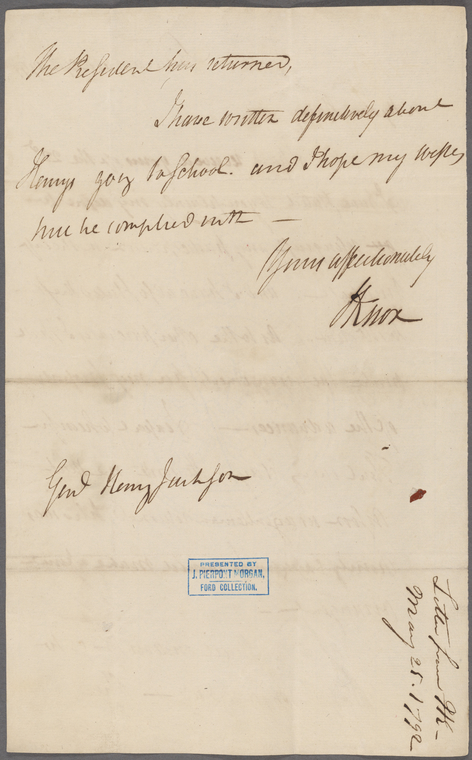 The President has returned,
I have written definitively about
Henrys going to School. and I hope my wishes
will be complied with —
Yours affectionately
HKnox
Genl Henry Jackson
PRESENTED BY
J. PIERPONT MORGAN,
FORD COLLECTION.
Letter from HK—
May 25. 1792